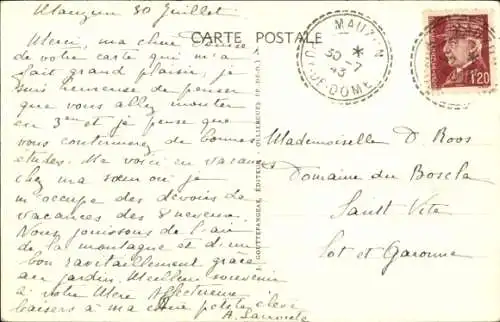 Mauzun 30 Juillet
Merci, ma chère Denise
de votre carte qui m'a
fait grand plaisir, je
suis heureuse de penser
que vous allez monter
en 3e et je pense que
vous continuerez de bonnes
études. Me voici en vacances
chez ma sœur où je
m'occupe des devoirs de
vacances des 8 neveux.
Nous jouissons de l'air
de la montagne et d'un
bon ravitaillement grâce
au jardin. Meilleur souvenir
à votre Mère Affectueux
baisers à ma petite élève
CARTE POSTALE
MAUZUN
30-7
43
PUY-DE-DOME
1.20
GOUTTEFANGEAS, ÉDITEUR, OLLIERGUES (P.-DE-D.)
Mademoiselle D Roos
Domaine du Boscla
Saint Vite
Lot et Garonne